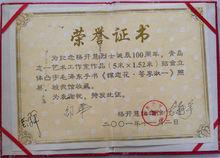 荣誉证书
为纪念杨开慧烈士诞辰100周年，青岛
一艺术工作室作品（5米×1.52米）贴金立
体凸字毛泽东手书《蝶恋花·答李淑一》照
展，被我馆收藏。
为表谢忱，特发此证。
杨开慧
二〇〇一年